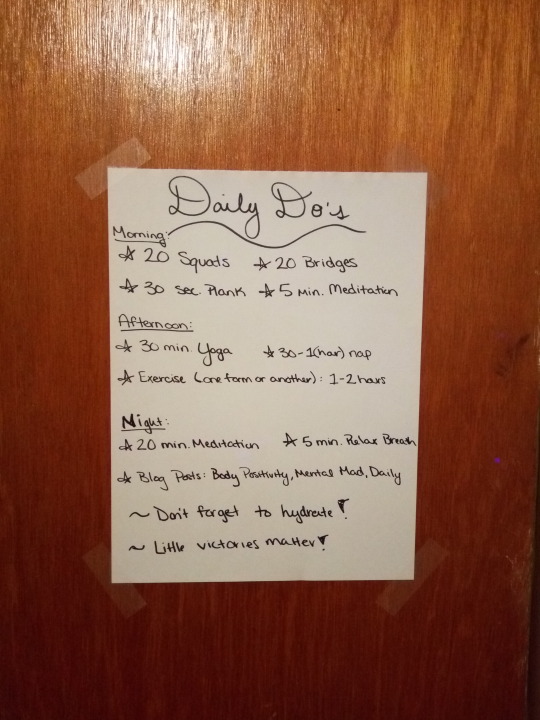 Daily Do's
Morning:
☆ 20 Squats ☆ 20 Bridges
☆ 30 sec. Plank ☆ 5 Min. Meditation
Afternoon:
☆ 30 min. Yoga ☆ 30-1(hour) nap
☆ Exercise (one form or another): 1-2 hours
Night:
☆ 20 min. Meditation ☆ 5 min. Relax Breath
☆ Blog Posts: Body Positivity, Mental Mad, Daily
~ Don't forget to hydrate!
~ Little victories matter!